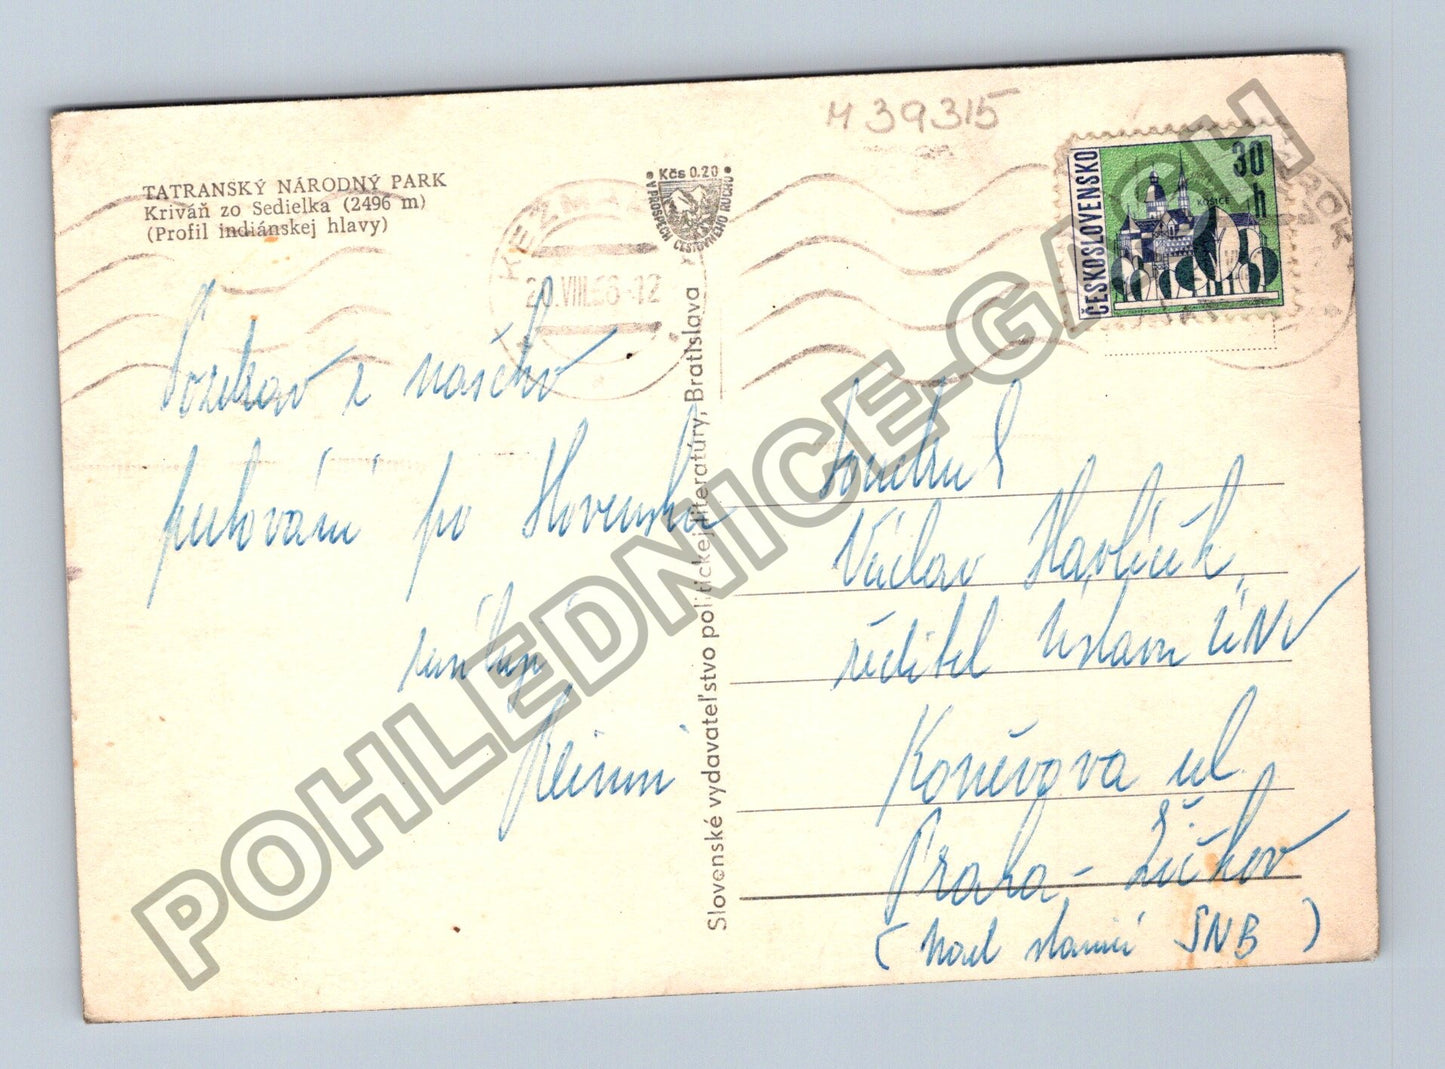 M 39315
TATRANSKÝ NÁRODNÝ PARK
Kriváň zo Sedielka (2496 m)
(Profil indiánskej hlavy)
Kčs 0.20
V PROSPECH CESTOVNÉHO RUCHU
KEŽMAROK
20.VIII.66-12
ČESKOSLOVENSKO
30 h
KOŠICE
Pozdrav z našeho
putování po Slovensku
Slovenské vydavateľstvo politickej literatúry, Bratislava
Soudruh
Václav Havlíček
ředitel Ústavu ÚNV
Koněvova ul.
Praha - Žižkov
(nad stanicí SNB)
POHLEDNICE-GACH